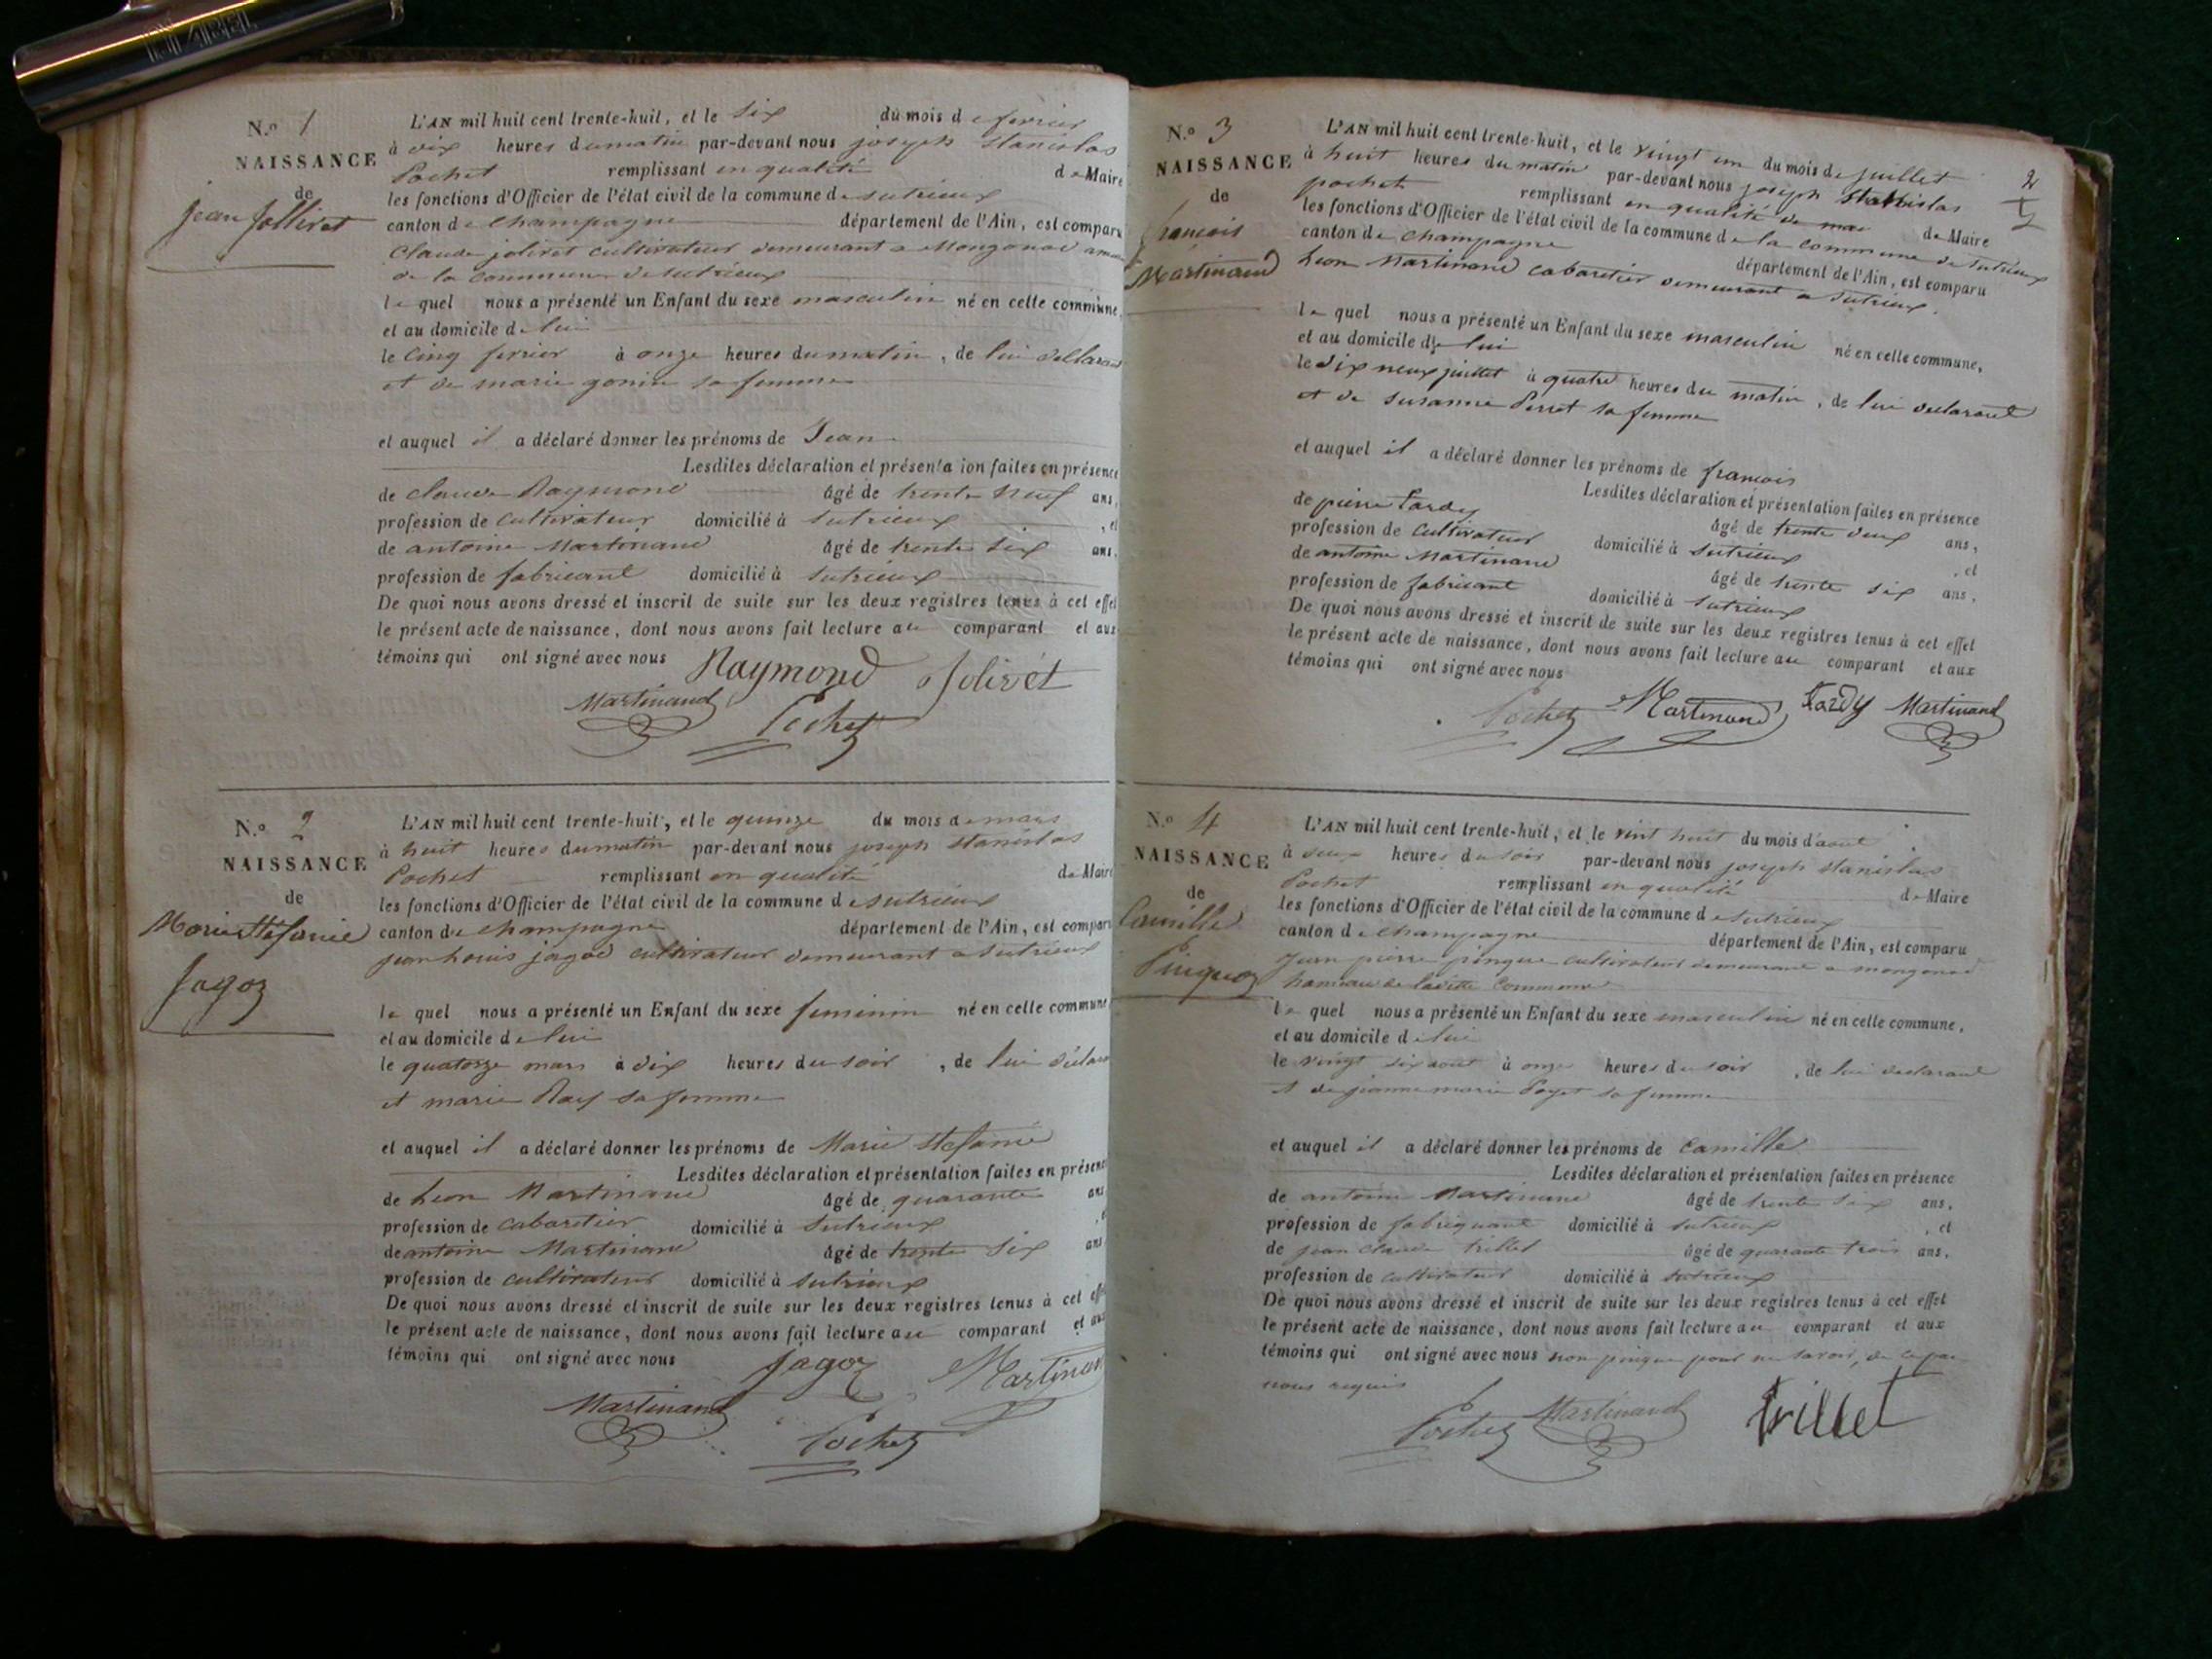 N.o 1
NAISSANCE
de
jean Jollivet
L'AN mil huit cent trente-huit, et le six du mois de fevrier
à dix heures du matin par-devant nous joseph stanislas
Pochet remplissant en qualité de Maire
les fonctions d'Officier de l'état civil de la commune de sutrieux
canton de champagne département de l'Ain, est comparu
Claude jolivet cultivateur demeurant a Mongonod
de la commune de sutrieux
le quel nous a présenté un Enfant du sexe masculin né en cette commune,
et au domicile de lui
le cinq fevrier à onze heures du matin, de lui declarant
et de marie gonin sa femme
et auquel il a déclaré donner les prénoms de Jean
Lesdites déclaration et présenta ion faites en présence
de claude Raymond âgé de trente neuf ans,
profession de cultivateur domicilié à sutrieux , et
de antoine Martinand âgé de trente six ans,
profession de fabricant domicilié à sutrieux
De quoi nous avons dressé et inscrit de suite sur les deux registres tenus à cet effet
le présent acte de naissance, dont nous avons fait lecture au comparant et aux
témoins qui ont signé avec nous
Raymond Jolivet
Martinand Pochet
N.o 2
NAISSANCE
de
Marie Stefanie
Jagoz
L'AN mil huit cent trente-huit, et le quinze du mois de mars
à huit heures du matin par-devant nous joseph stanislas
Pochet remplissant en qualité de Maire
les fonctions d'Officier de l'état civil de la commune de sutrieux
canton de champagne département de l'Ain, est comparu
jean louis jagod cultivateur demeurant a sutrieux
le quel nous a présenté un Enfant du sexe feminin né en cette commune
et au domicile de lui
le quatorze mars à dix heures du soir , de lui déclara
et marie Rey sa femme
et auquel il a déclaré donner les prénoms de Marie Stefanie
Lesdites déclaration et présentation faites en présence
de Leon Martinand âgé de quarante ans
profession de cabaretier domicilié à sutrieux , et
de antoine Martinand âgé de trente six ans
profession de cultivateur domicilié à sutrieux
De quoi nous avons dressé et inscrit de suite sur les deux registres tenus à cet effet
le présent acte de naissance, dont nous avons fait lecture au comparant et aux
témoins qui ont signé avec nous
Jagoz Martinand
Martinand Pochet
2
N.o 3
NAISSANCE
de
francois
Martinand
L'AN mil huit cent trente-huit, et le vingt un du mois de juillet
à huit heures du matin par-devant nous joseph Stanislas
pochet remplissant en qualité de mai de Maire
les fonctions d'Officier de l'état civil de la commune de la commune de sutrieux
canton de champagne département de l'Ain, est comparu
Leon Martinand cabaretier demeurant a sutrieux.
le quel nous a présenté un Enfant du sexe masculin né en cette commune,
et au domicile de lui
le dix neuf juillet à quatre heures du matin, de lui declarant
et de susanne Perret sa femme
et auquel il a déclaré donner les prénoms de francois
Lesdites déclaration et présentation faites en présence
de pierre tardy âgé de trente deux ans,
profession de cultivateur domicilié à sutrieux , et
de antoine Martinand âgé de trente six ans,
profession de fabricant domicilié à sutrieux
De quoi nous avons dressé et inscrit de suite sur les deux registres tenus à cet effet
le présent acte de naissance, dont nous avons fait lecture au comparant et aux
témoins qui ont signé avec nous
Pochet Martinand tardy Martinand
N.o 4
NAISSANCE
de
Camille
Pinquoz
L'AN mil huit cent trente-huit, et le vint huit du mois d'aout
à deux heures du soir par-devant nous joseph stanislas
Pochet remplissant en qualité de Maire
les fonctions d'Officier de l'état civil de la commune de sutrieux
canton de champagne département de l'Ain, est comparu
Jean pierre pinque cultivateur demeurant a mongonod
hameau de ladite commune
le quel nous a présenté un Enfant du sexe masculin né en cette commune,
et au domicile de lui
le vingt six aout à onze heures du soir , de lui declarant
et de jeanne marie Poget sa femme
et auquel il a déclaré donner les prénoms de Camille
Lesdites déclaration et présentation faites en présence
de antoine Martinand âgé de trente six ans,
profession de fabriquant domicilié à sutrieux , et
de jean claude trillet âgé de quarante trois ans,
profession de cultivateur domicilié à sutrieux
De quoi nous avons dressé et inscrit de suite sur les deux registres tenus à cet effet
le présent acte de naissance, dont nous avons fait lecture au comparant et aux
témoins qui ont signé avec nous non pinque pour ne savoir, de ce par
nous requis
Pochet Martinand trillet